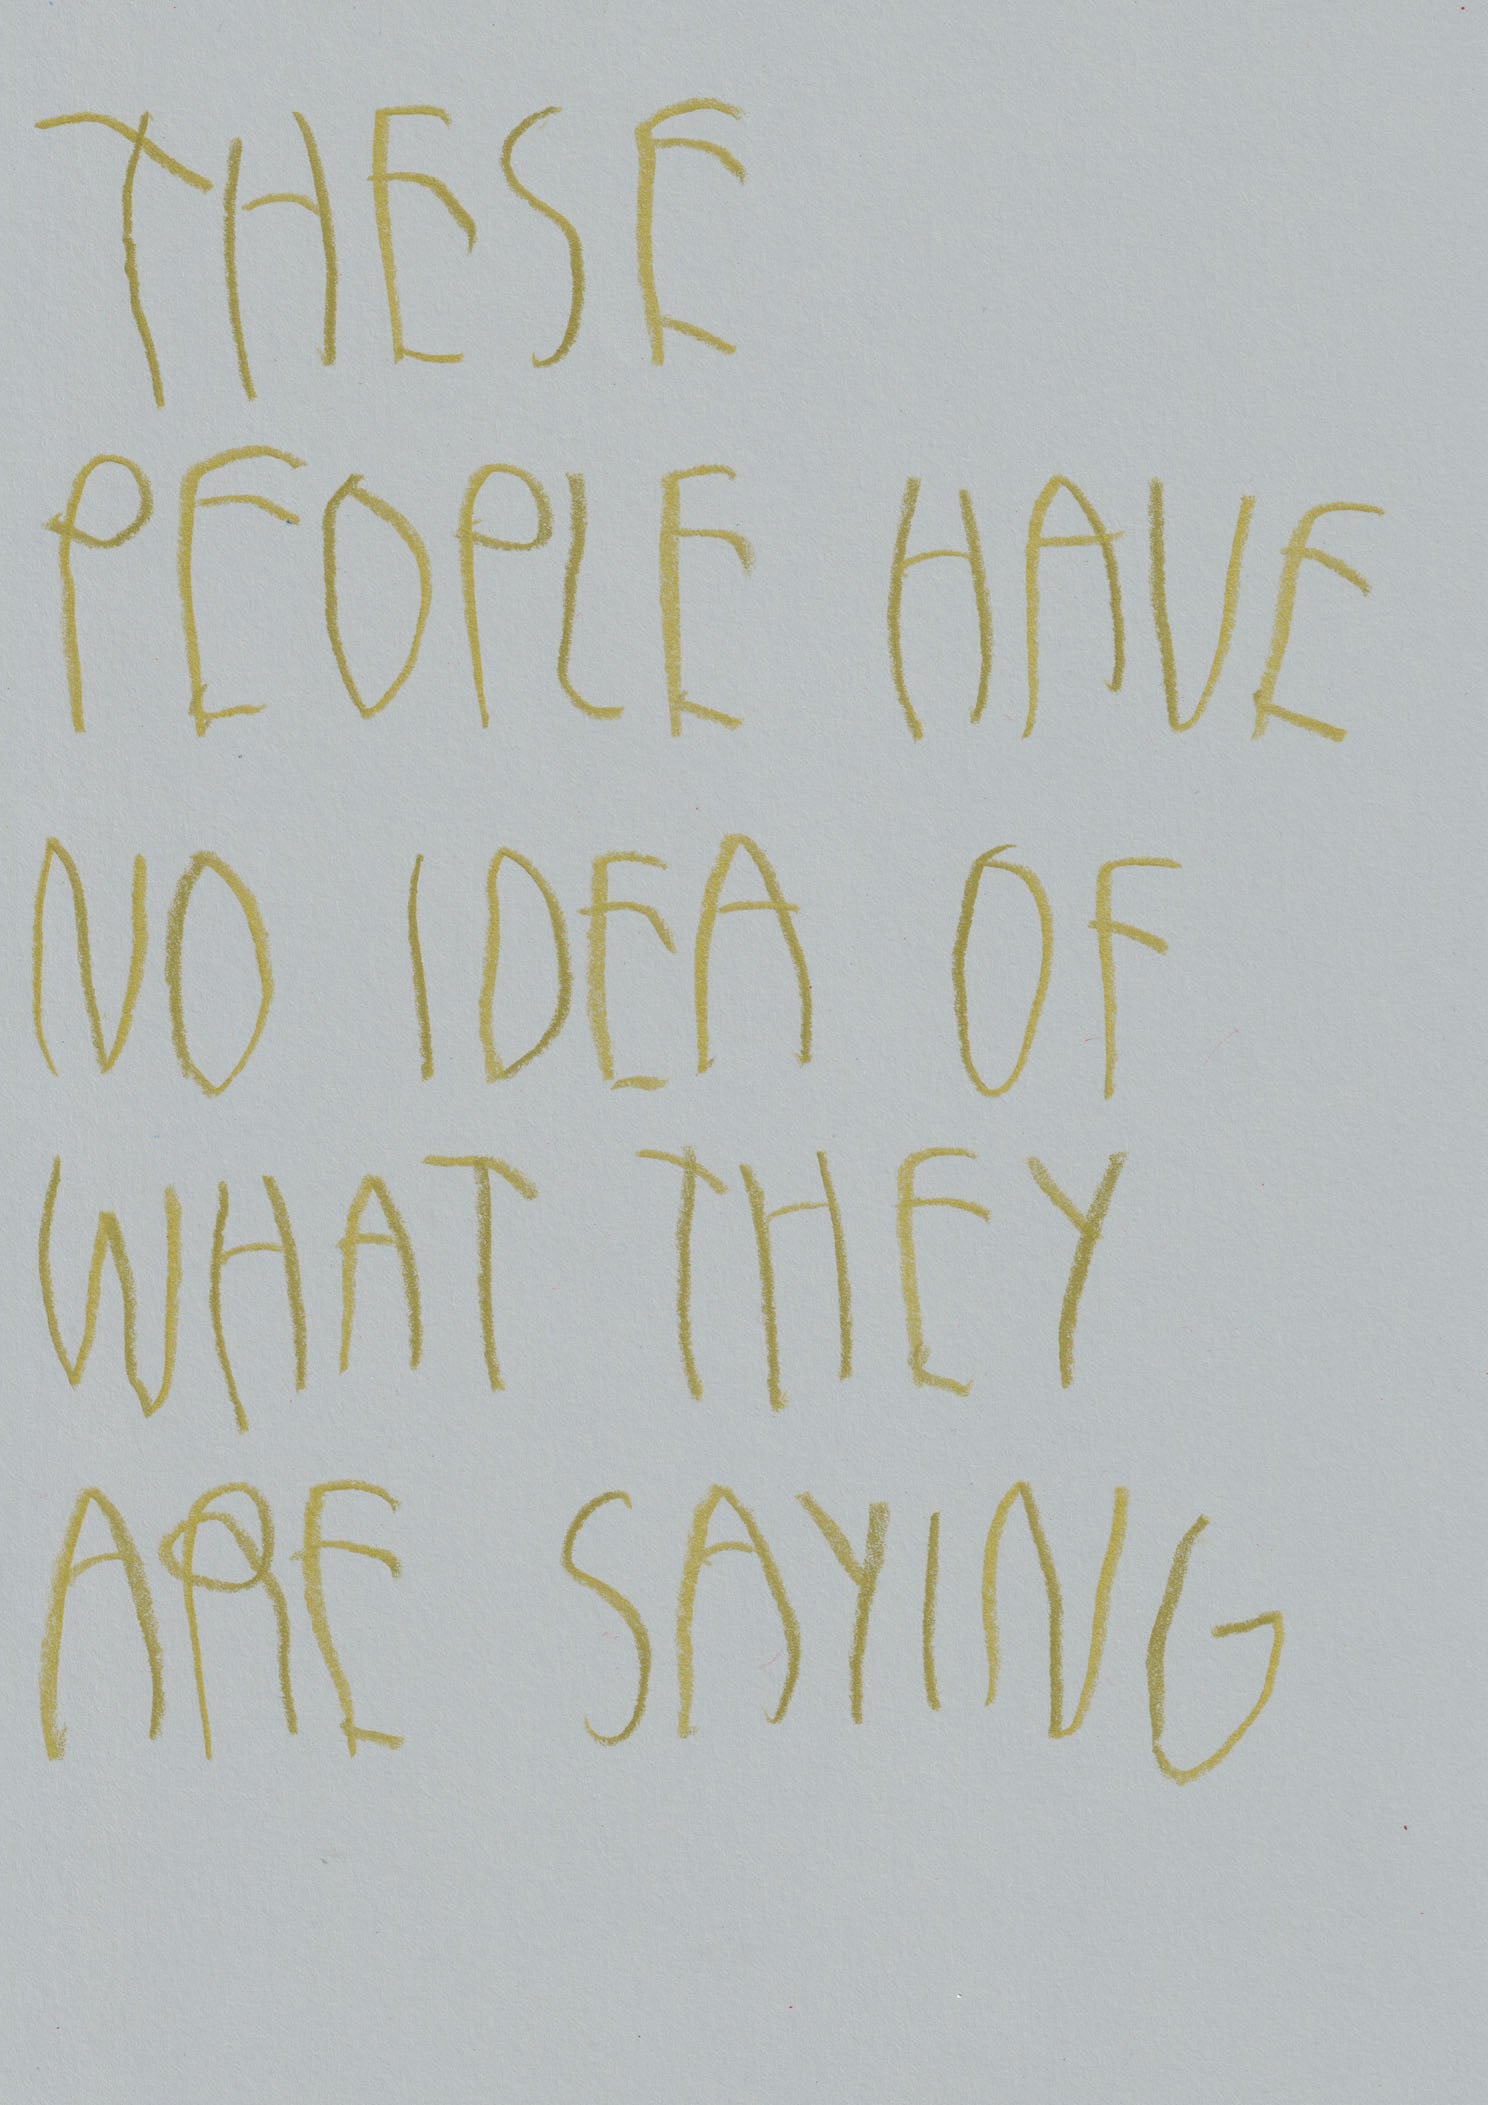 THESE
PEOPLE HAVE
NO IDEA OF
WHAT THEY
ARE SAYING